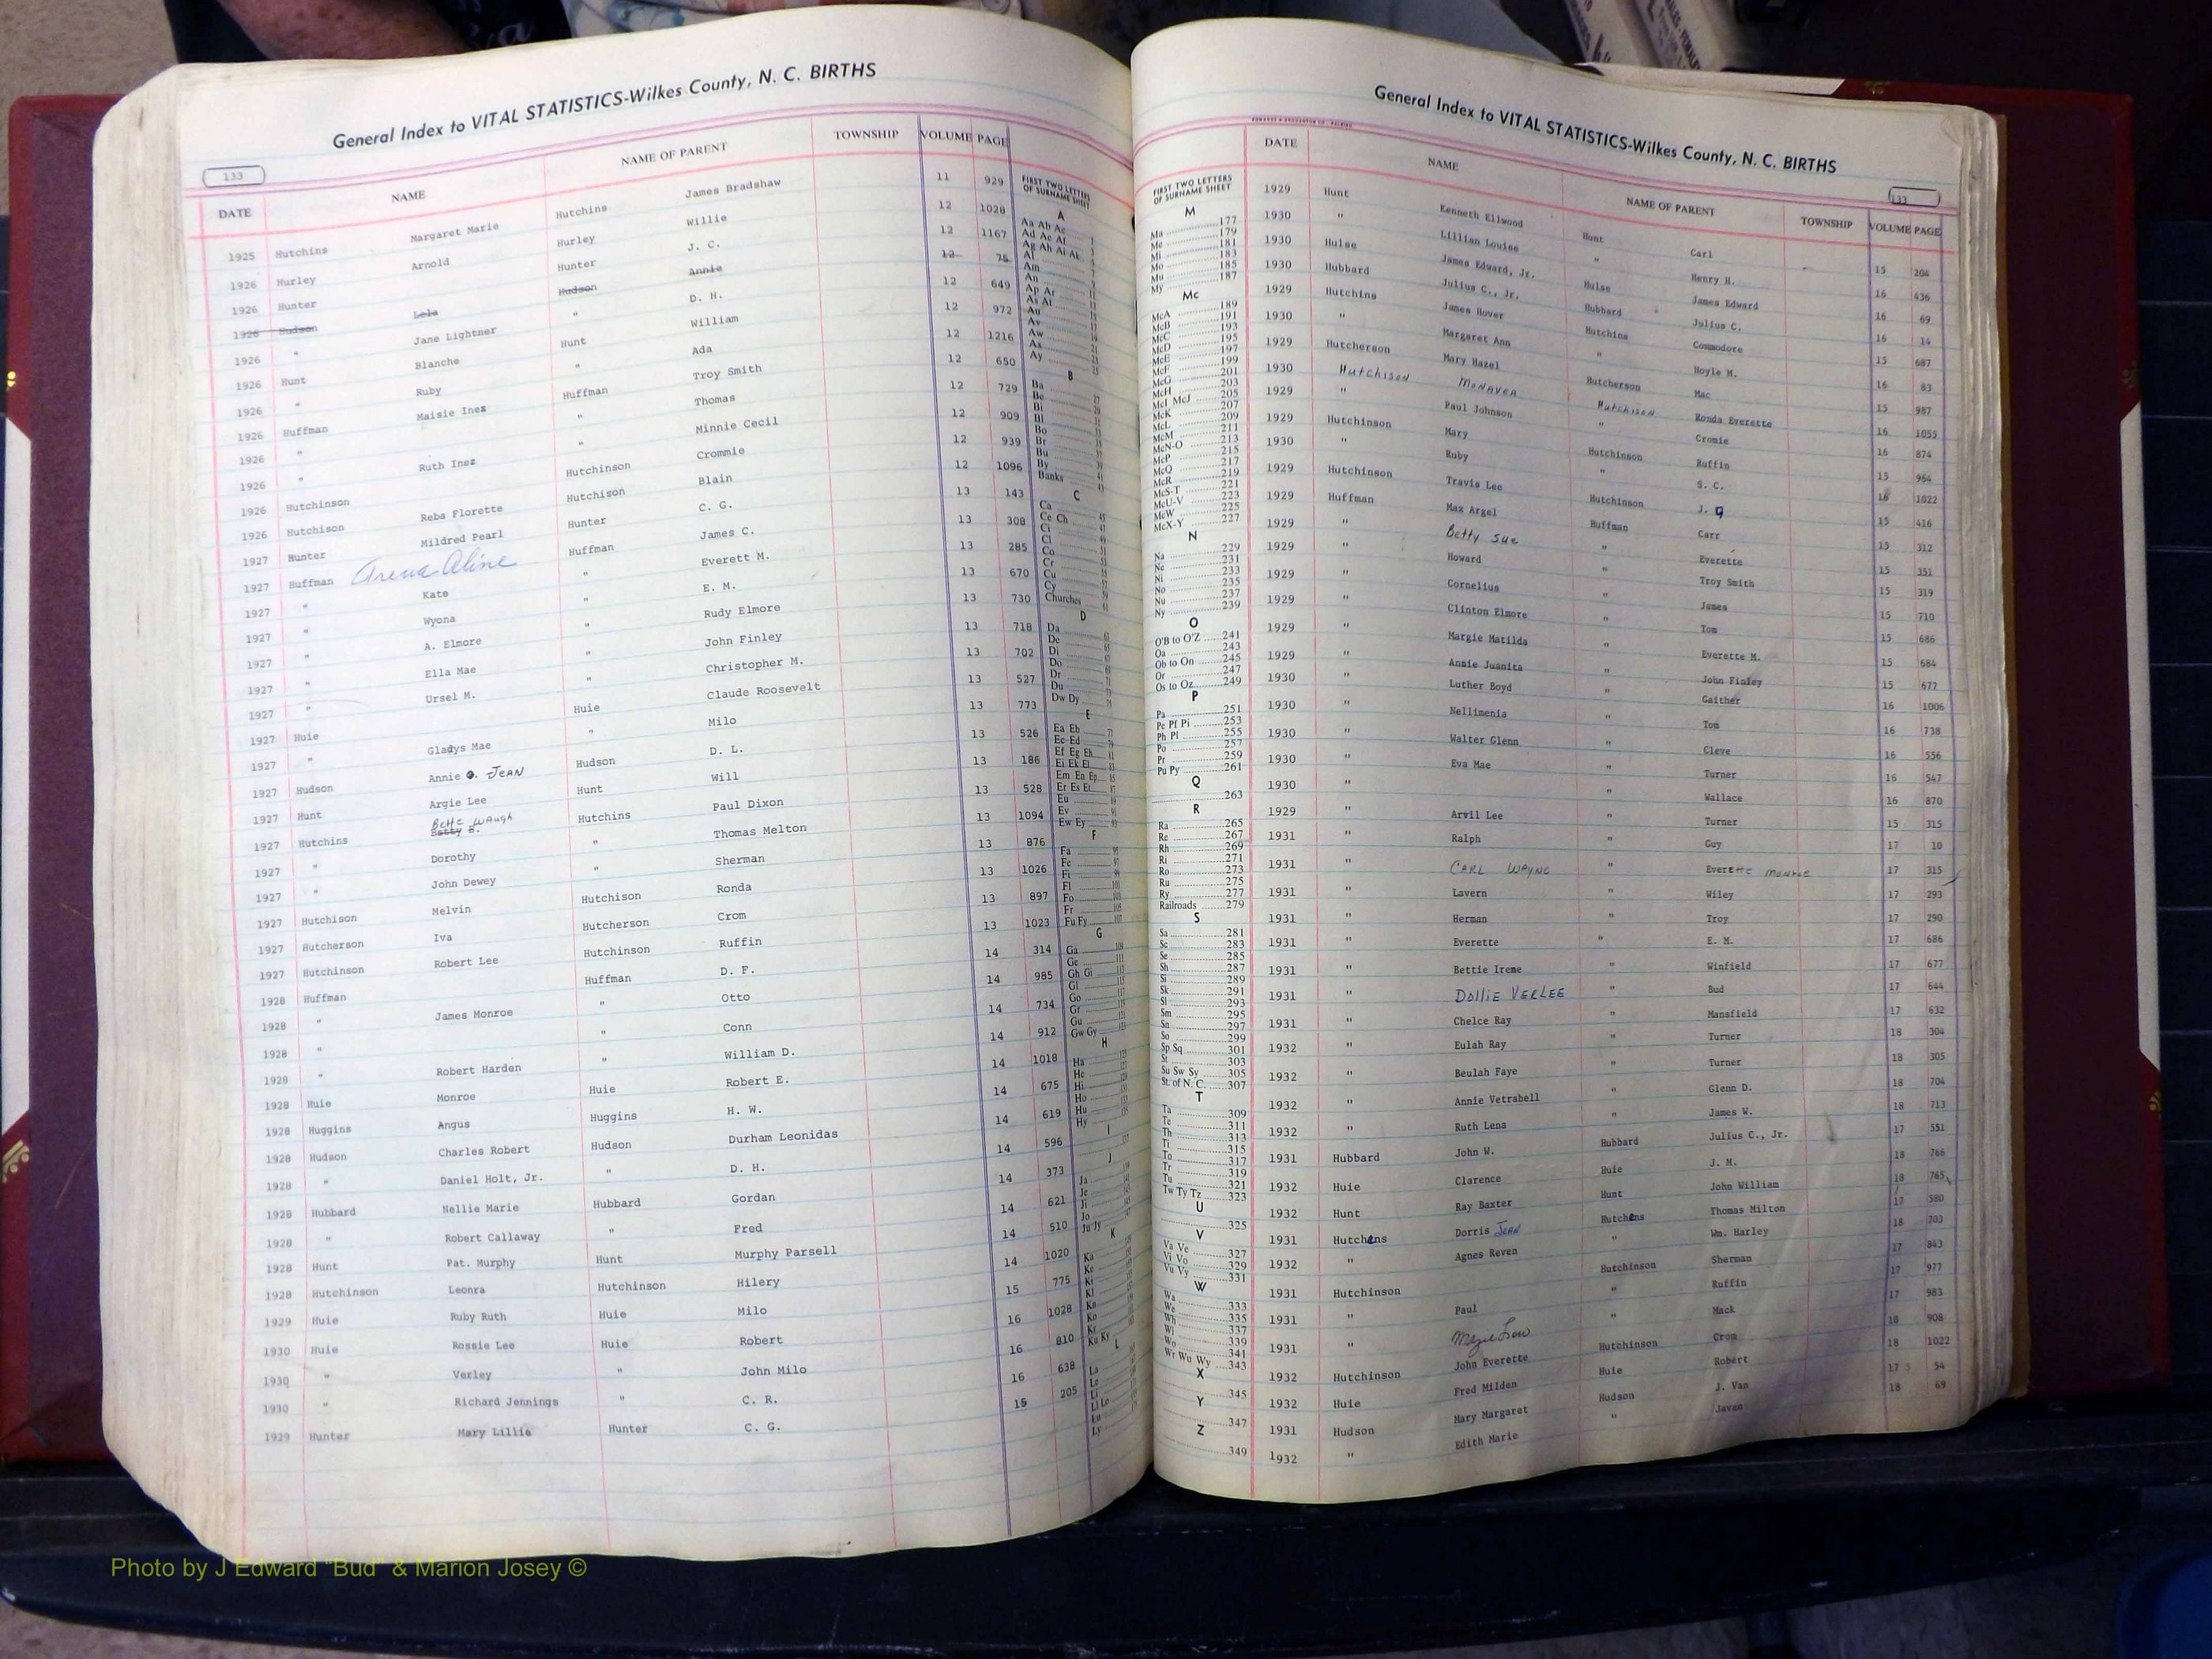 General Index to VITAL STATISTICS-Wilkes County, N. C. BIRTHS
133
DATE NAME NAME OF PARENT TOWNSHIP VOLUME PAGE
1925 Hutchins Margaret Marie Hutchins James Bradshaw 11 929
1926 Hurley Arnold Hurley Willie 12 1028
1926 Hunter Hunter J. C. 12 1167
1926 Hudson Lela Hudson Annie 12 75
1926 " Jane Lightner " D. H. 12 649
1926 Hunt Blanche Hunt William 12 972
1926 " Ruby " Ada 12 1216
1926 Huffman Maisie Inez Huffman Troy Smith 12 650
1926 " " Thomas 12 729
1926 " Ruth Inez " Minnie Cecil 12 909
1926 Hutchinson Hutchinson Crommie 12 939
1926 Hutchison Reba Florette Hutchison Blain 12 1096
1927 Hunter Mildred Pearl Hunter C. G. 13 143
1927 Huffman Arena Aline Huffman James C. 13 308
1927 " Kate " Everett M. 13 285
1927 " Wyona " E. M. 13 670
1927 " A. Elmore " Rudy Elmore 13 730
1927 " Ella Mae " John Finley 13 718
1927 " Ursel M. " Christopher M. 13 702
1927 Huie Huie Claude Roosevelt 13 527
1927 " Gladys Mae " Milo 13 773
1927 Hudson Annie O. JEAN Hudson D. L. 13 526
1927 Hunt Argie Lee Hunt Will 13 186
1927 Hutchins Bette Waugh Betty B. Hutchins Paul Dixon 13 528
1927 " Dorothy " Thomas Melton 13 1094
1927 " John Dewey " Sherman 13 876
1927 Hutchison Melvin Hutchison Ronda 13 1026
1927 Hutcherson Iva Hutcherson Crom 13 897
1927 Hutchinson Robert Lee Hutchinson Ruffin 13 1023
1928 Huffman Huffman D. F. 14 314
1928 " James Monroe " Otto 14 985
1928 " " Conn 14 734
1928 " Robert Harden " William D. 14 912
1928 Huie Monroe Huie Robert E. 14 1018
1928 Huggins Angus Huggins H. W. 14 675
1928 Hudson Charles Robert Hudson Durham Leonidas 14 619
1928 " Daniel Holt, Jr. " D. H. 14 596
1928 Hubbard Nellie Marie Hubbard Gordan 14 373
1928 " Robert Callaway " Fred 14 621
1928 Hunt Pat. Murphy Hunt Murphy Parsell 14 510
1928 Hutchinson Leonra Hutchinson Hilery 14 1020
1929 Huie Ruby Ruth Huie Milo 15 775
1930 Huie Rossie Lee Huie Robert 16 1028
1930 " Verley " John Milo 16 810
1930 " Richard Jennings " C. R. 16 638
1929 Hunter Mary Lillie Hunter C. G. 15 205
FIRST TWO LETTERS OF SURNAME SHEET
A
Aa Ab Ac
Ad Ae Af
Ag Ah Ai Ak
Al
Am
An
Ap Ar
As At
Au
Av
Aw
Ax
Ay
B
Ba
Be
Bi
Bl
Bo
Br
Bu
By
Banks
C
Ca
Ce Ch
Ci
Cl
Co
Cr
Cu
Cy
Churches
D
Da
De
Di
Do
Dr
Du
Dw Dy
E
Ea Eb
Ec Ed
Ef Eg Eh
Ei Ek El
Em En Ep
Er Es Et
Eu
Ev
Ew Ey
F
Fa
Fe
Fi
Fl
Fo
Fr
Fu Fy
G
Ga
Ge
Gh Gi
Gl
Go
Gr
Gu
Gw Gy
H
Ha
He
Hi
Ho
Hu
Hy
I
J
Ja
Je
Ji
Jo
Ju Jy
K
Ka
Ke
Ki
Kl
Kn
Ko
Kr
Ku Ky
L
La
Le
Li
Ll Lo
Lu
Ly
General Index to VITAL STATISTICS-Wilkes County, N. C. BIRTHS
133
FIRST TWO LETTERS OF SURNAME SHEET
M
Ma 177
Me 179
Mi 181
Mo 183
Mu 185
My 187
Mc
McA 189
McB 191
McC 193
McD 195
McE 197
McF 199
McG 201
McH 203
McI McJ 205
McK 207
McL 209
McM 211
McN-O 213
McP 215
McQ 217
McR 219
McS-T 221
McU-V 223
McW 225
McX-Y 227
N
Na 229
Ne 231
Ni 233
No 235
Nu 237
Ny 239
O
O'B to O'Z 241
Oa 243
Ob to On 245
Or 247
Os to Oz 249
P
Pa 251
Pe Pf Pi 253
Ph Pl 255
Po 257
Pr 259
Pu Py 261
Q
263
R
Ra 265
Re 267
Rh 269
Ri 271
Ro 273
Ru 275
Ry 277
Railroads 279
S
Sa 281
Sc 283
Se 285
Sh 287
Si 289
Sk 291
Sl 293
Sm 295
Sn 297
So 299
Sp Sq 301
St 303
Su Sw Sy 305
St. of N. C. 307
T
Ta 309
Te 311
Th 313
Ti 315
To 317
Tr 319
Tu 321
Tw Ty Tz 323
U
325
V
Va Ve 327
Vi Vo 329
Vu Vy 331
W
Wa 333
We 335
Wh 337
Wi 339
Wo 341
Wr Wu Wy 343
X
345
Y
347
Z
349
DATE NAME NAME OF PARENT TOWNSHIP VOLUME PAGE
1929 Hunt Kenneth Ellwood Hunt Carl 15 204
1930 " Lillian Louise " Henry H. 16 436
1930 Hulse James Edward, Jr. Hulse James Edward 16 69
1930 Hubbard Julius C., Jr. Hubbard Julius C. 16 14
1929 Hutchins James Hover Hutchins Commodore 15 687
1930 " Margaret Ann " Hoyle M. 16 83
1929 Hutcherson Mary Hazel Hutcherson Mac 15 987
1930 Hutchison MONAVEA Hutchison Ronda Everette 16 1055
1929 " Paul Johnson " Cromie 16 874
1929 Hutchinson Mary Hutchinson Ruffin 15 964
1930 " Ruby " S. C. 16 1022
1929 Hutchinson Travis Lee Hutchinson J. 15 416
1929 Huffman Max Argel Huffman Carr 15 312
1929 " Betty Sue " Everette 15 351
1929 " Howard " Troy Smith 15 319
1929 " Cornelius " James 15 710
1929 " Clinton Elmore " Tom 15 686
1929 " Margie Matilda " Everette M. 15 684
1929 " Annie Juanita " John Finley 15 677
1930 " Luther Boyd " Gaither 16 1006
1930 " Nellimenia " Tom 16 738
1930 " Walter Glenn " Cleve 16 556
1930 " Eva Mae " Turner 16 547
1930 " " Wallace 16 870
1929 " Arvil Lee " Turner 15 315
1931 " Ralph " Guy 17 10
1931 " CARL WAYNE " Everette Monroe 17 315
1931 " Lavern " Wiley 17 293
1931 " Herman " Troy 17 290
1931 " Everette " E. M. 17 686
1931 " Bettie Irene " Winfield 17 677
1931 " DOLLIE VERLEE " Bud 17 644
1931 " Chelce Ray " Mansfield 17 632
1932 " Eulah Ray " Turner 18 304
1932 " Beulah Faye " Turner 18 305
1932 " Annie Vetrabell " Glenn D. 18 704
1932 " Ruth Lena " James W. 18 713
1931 Hubbard John W. Hubbard Julius C., Jr. 17 551
1932 Huie Clarence Huie J. M. 18 766
1932 Hunt Ray Baxter Hunt John William 18 765
1931 Hutchens Dorris Jean Hutchens Thomas Milton 17 580
1932 " Agnes Reven " Wm. Harley 18 703
1931 Hutchinson Hutchinson Sherman 17 843
1931 " Paul " Ruffin 17 977
1931 " Mack 17 983
1932 Hutchinson John Everette Hutchinson Crom 18 908
1932 Huie Fred Milden Huie Robert 18 1022
1931 Hudson Mary Margaret Hudson J. Van 17 54
1932 " Edith Marie " Javan 18 69
Photo by J Edward "Bud" & Marion Josey ©